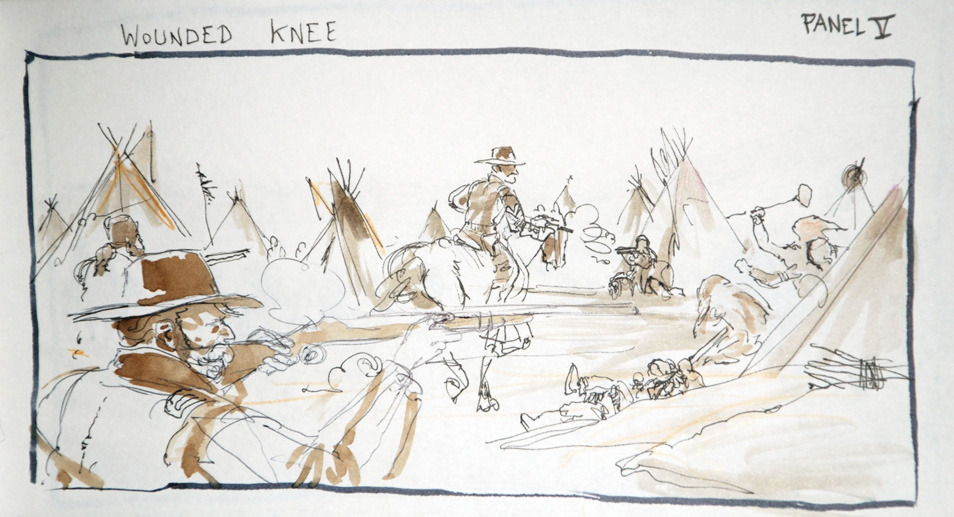 WOUNDED KNEE
PANEL V